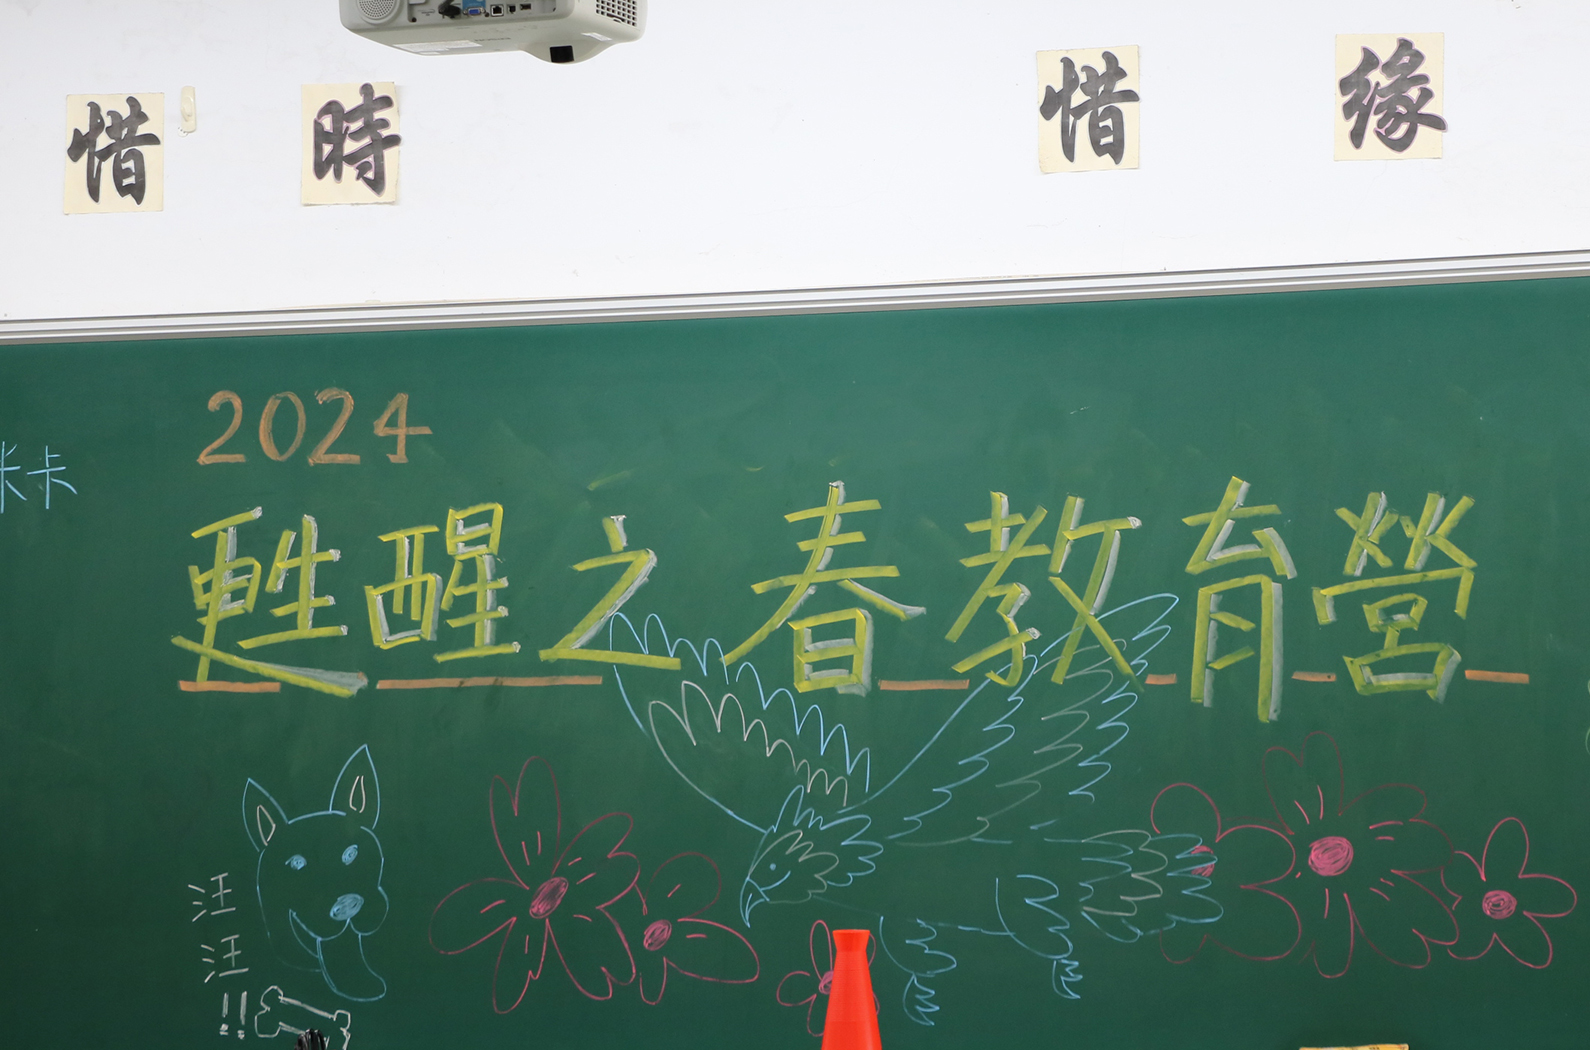 惜時
惜緣
2024
甦醒之春教育營
卡
汪
汪
!!